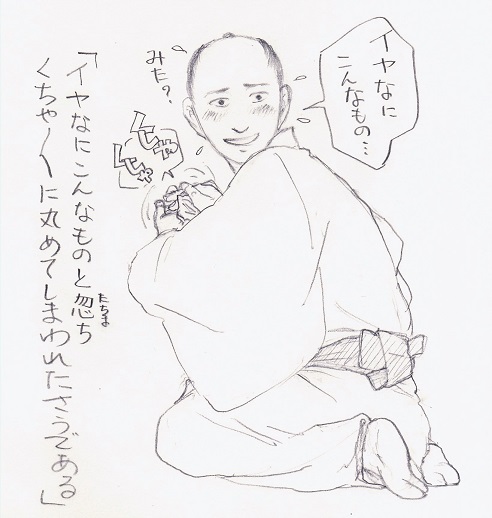 イヤなに
こんなもの…
みた?
くしゃ
くしゃ
「イヤなにこんなものと忽ち
たちま
くちゃ〱に丸めてしまわれたさうである」